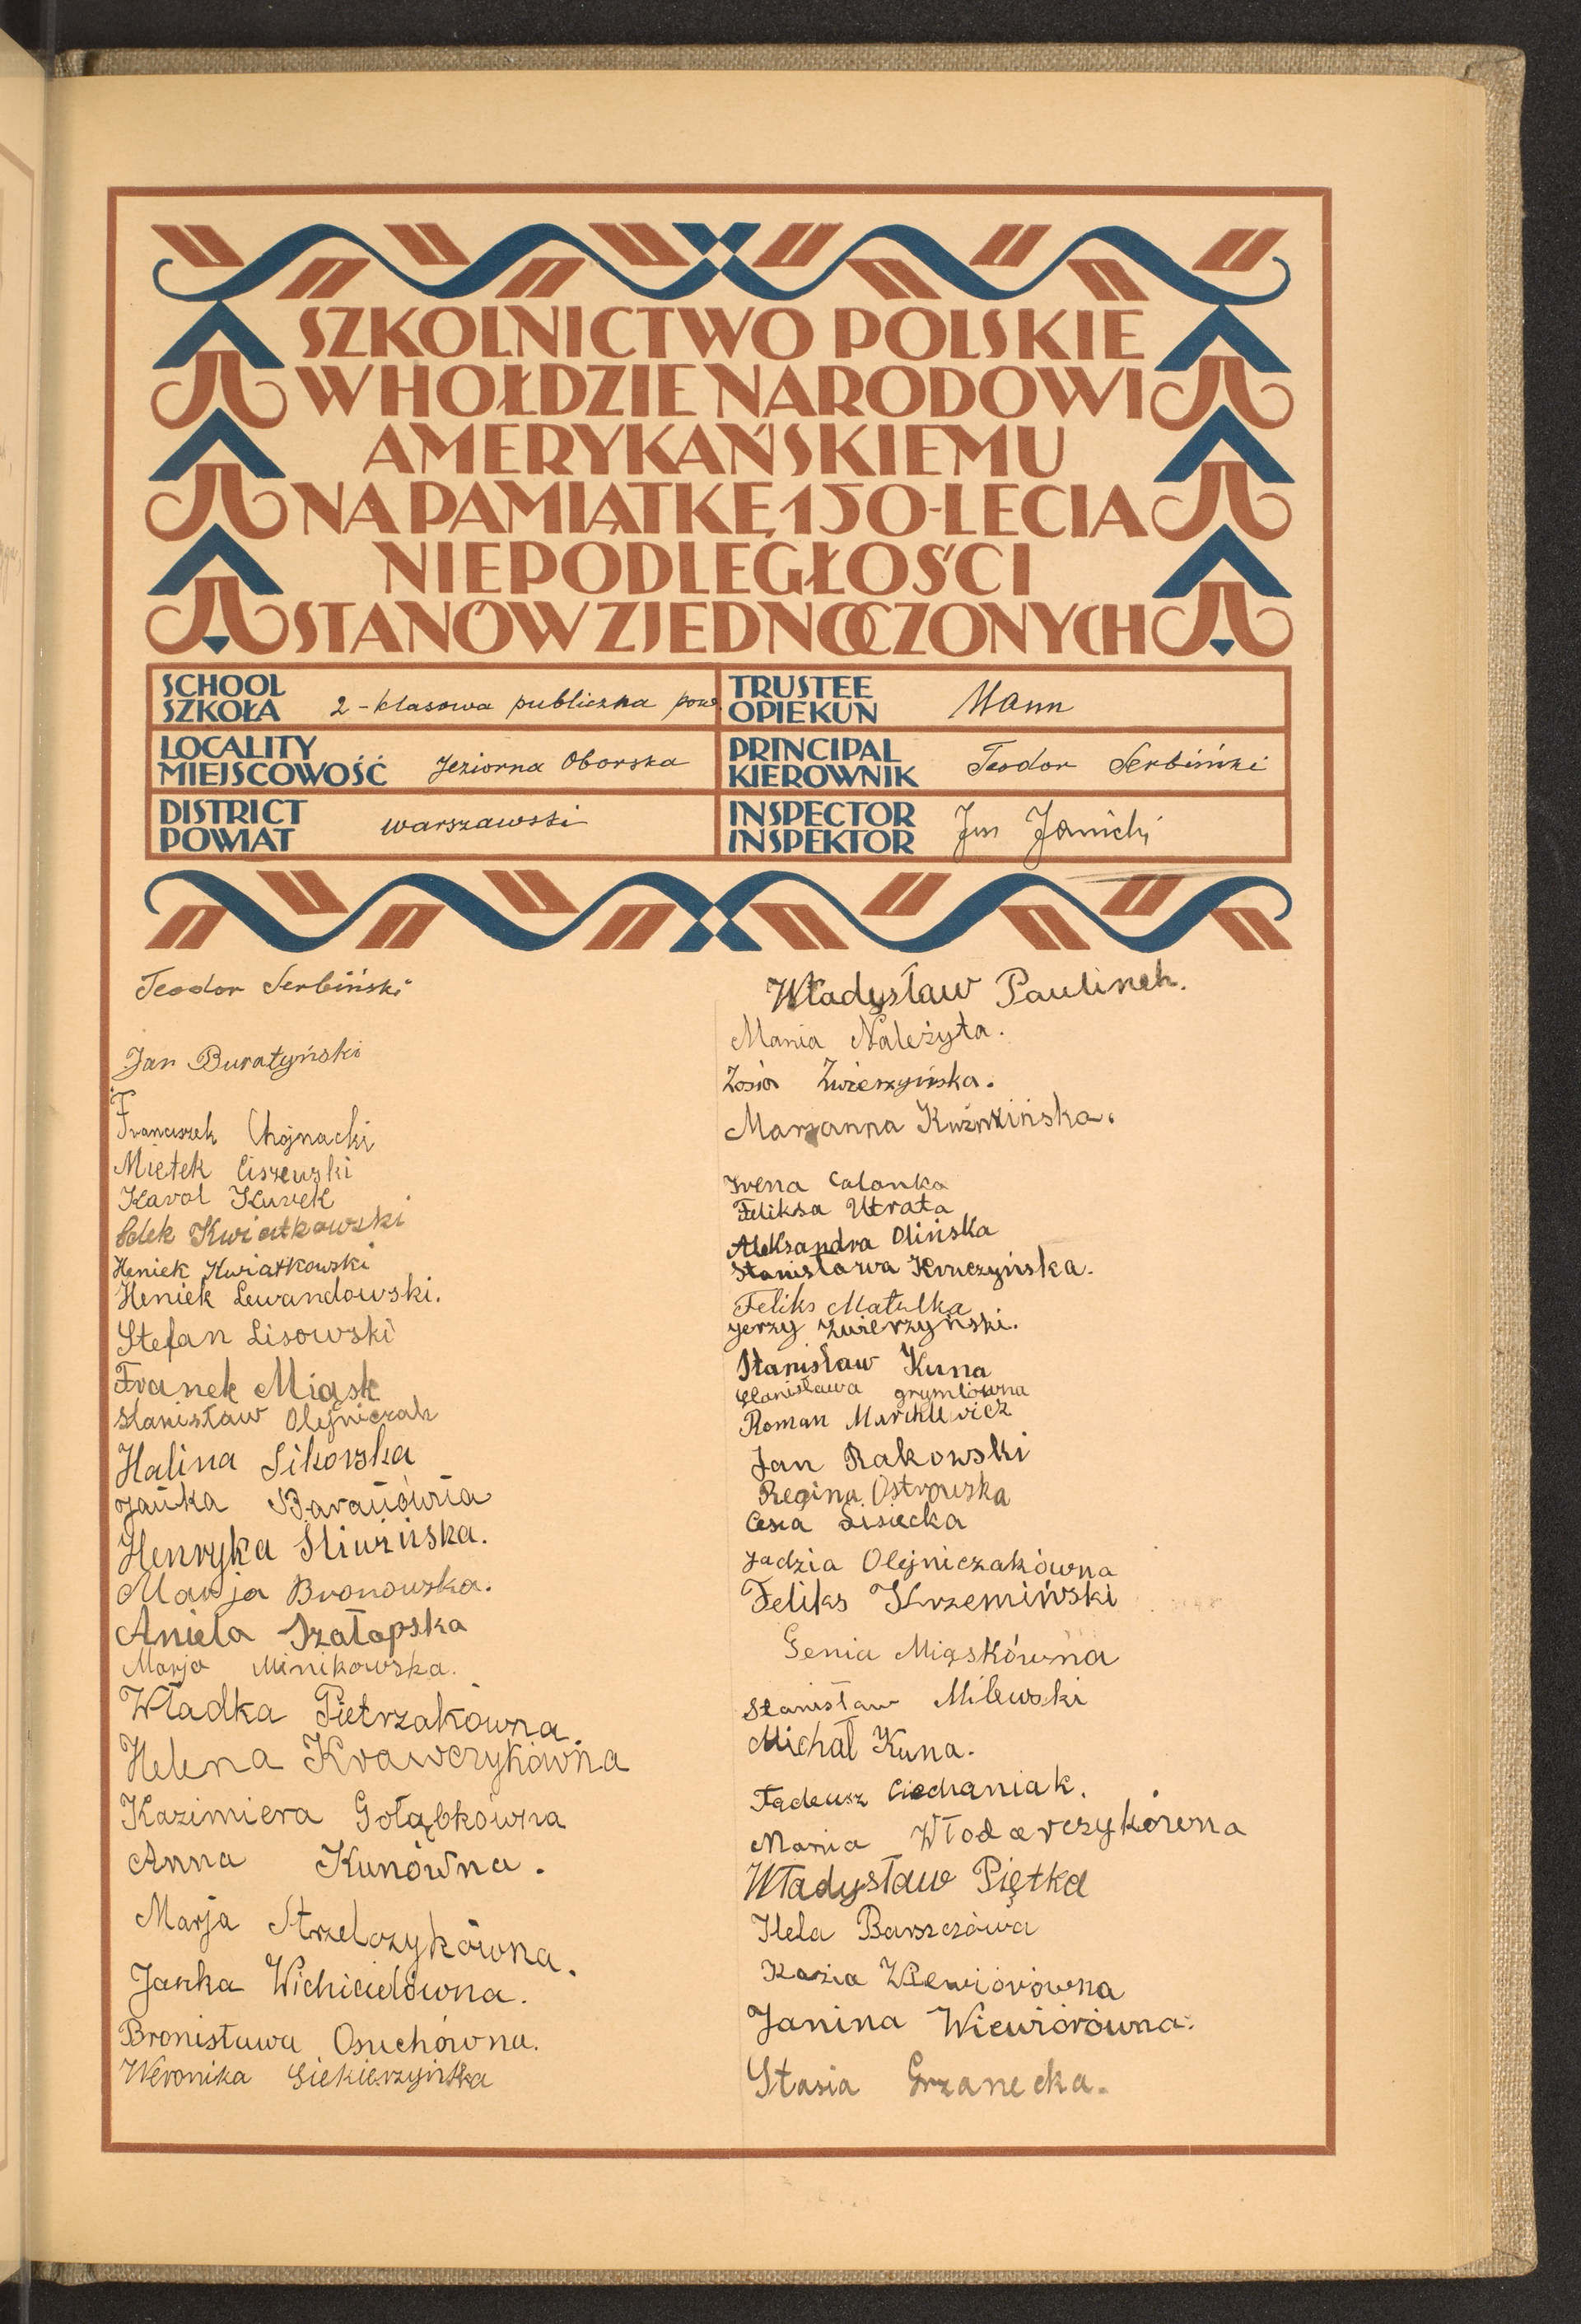 SZKOLNICTWO POLSKIE
W HOŁDZIE NARODOWI
AMERYKAŃSKIEMU
NA PAMIĄTKĘ 150-LECIA
NIEPODLEGŁOŚCI
STANÓW ZJEDNOCZONYCH
SCHOOL
SZKOŁA 2-klasowa publiczna pow.
TRUSTEE
OPIEKUN Mann
LOCALITY
MIEJSCOWOŚĆ Jeziorna Oborska
PRINCIPAL
KIEROWNIK Teodor Serbiński
DISTRICT
POWIAT warszawski
INSPECTOR
INSPEKTOR Jan Janicki
Teodor Serbiński
Jan Buratyński
Franciszek Chojnacki
Mietek Ciszewski
Karol Kurek
Kwiatkowski
Heniek Kwiatkowski
Heniek Lewandowski.
Stefan Lisowski
Franek Miąsk
Stanisław Olejniczak
Halina Sikorska
Janka Baranówna
Henryka Śliwińska.
Marja Bronowska.
Aniela Szałapska
Marja Minikowska.
Władka Pietrzakówna.
Helena Krawczykówna
Kazimiera Gołąbkówna
Anna Kunówna.
Marja Strzelczykówna.
Janka Wichicielówna.
Bronisława Osuchówna.
Weronika Siekierzyńska
Władysław Paulinek.
Mania Należyta.
Zosia Zwierzyńska.
Marzanna Kuźmińska.
Irena Calonka
Feliksa Utrata
Aleksandra Olińska
Stanisława Kruczyńska.
Feliks Matulka
Jerzy Zwierzyński.
Stanisław Kuna
Stanisława Grymlówna
Roman Markiewicz
Jan Rakowski
Regina Ostrowska
Cesia Lisiecka
Jadzia Olejniczakówna
Feliks Krzemiński
Genia Miąskówna
Stanisław Milewski
Michał Kuna.
Tadeusz Ciechaniak.
Mania Włodarczykówna
Władysław Piętka
Hela Barszczówa
Kazia Wiewiórówna
Janina Wiewiórówna.
Stasia Grzanecka.